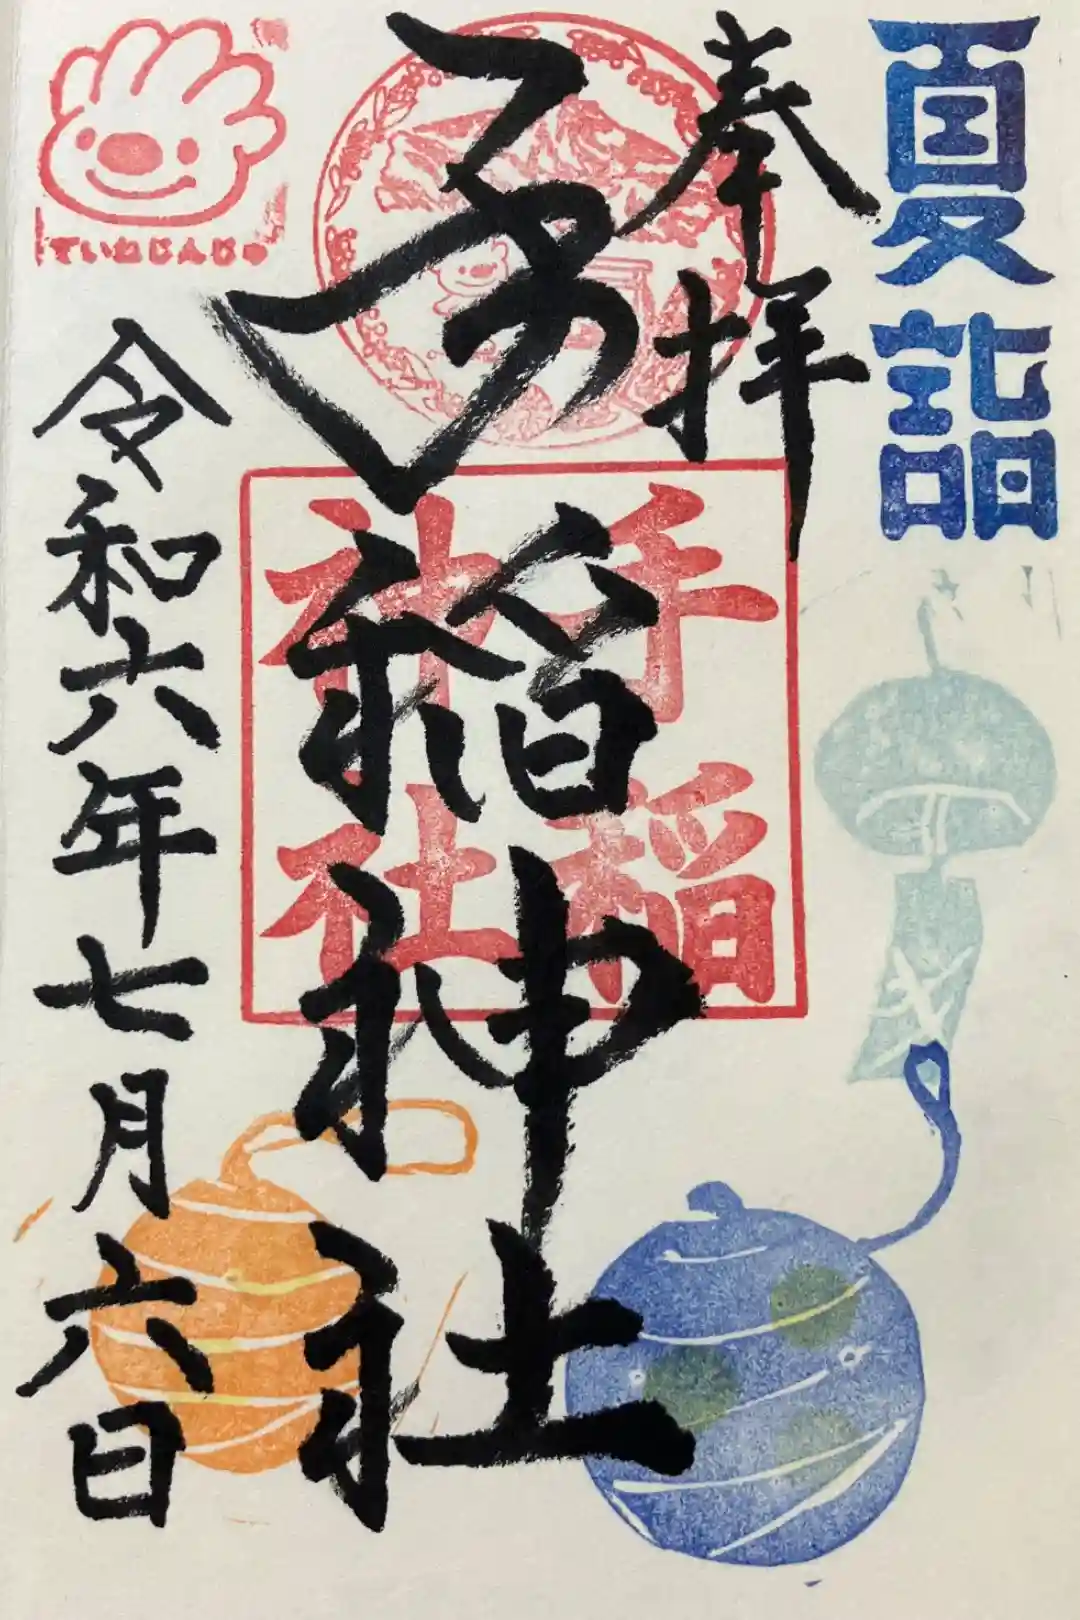 夏詣
奉拝
手稲神社
手稲
神社
ていねじんじゃ
令和六年七月六日